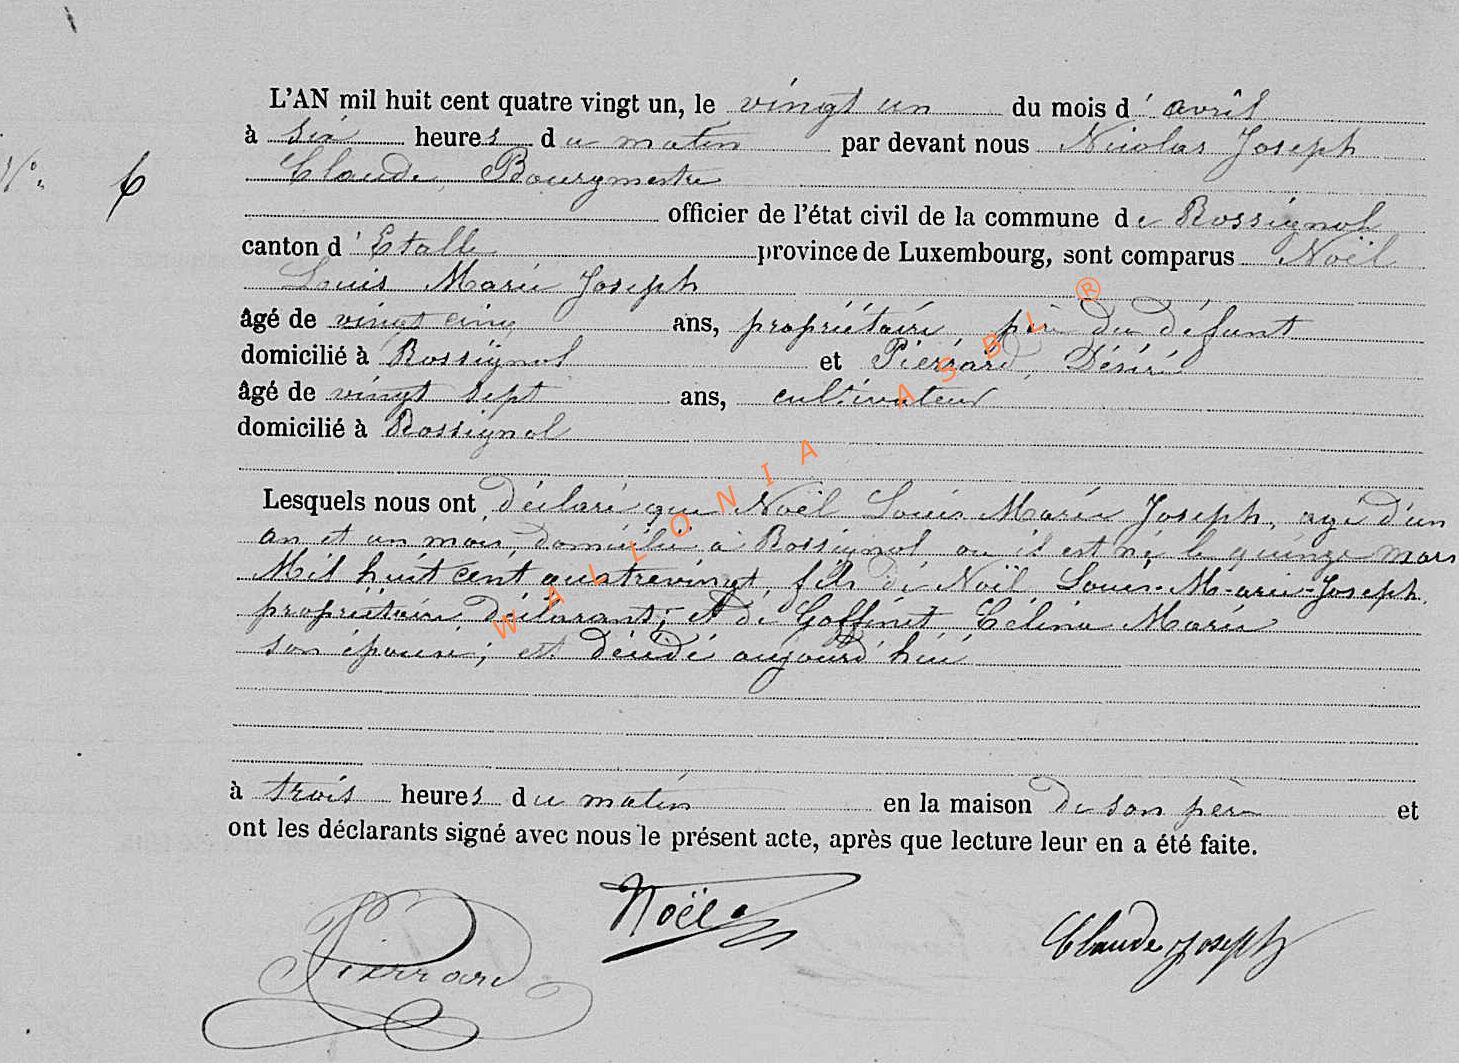 L'AN mil huit cent quatre vingt un, le vingt un du mois d' avril
à six heures du matin par devant nous Nicolas Joseph
N° 6 Claude, Bourgmestre
officier de l'état civil de la commune de Rossignol
canton d'Etalle province de Luxembourg, sont comparus Noël
Louis Marie Joseph
âgé de vingt cinq ans, propriétaire père du défunt
domicilié à Rossignol et Pierrard, Désiré
âgé de vingt sept ans, cultivateur
domicilié à Rossignol
Lesquels nous ont déclaré que Noël Louis Marie Joseph, agé d'un
an et un mois, domicilié à Rossignol où il est né le quinze mars
Mil huit cent quatrevingt, fils de Noël Louis-Marie-Joseph.
propriétaire déclarant; et de Goffinet Célina Marie
son épouse; est décédé aujourd'hui
à trois heures du matin en la maison de son père et
ont les déclarants signé avec nous le présent acte, après que lecture leur en a été faite.
Pierrard Noël Claude Joseph
WALLONIA ASBL ®